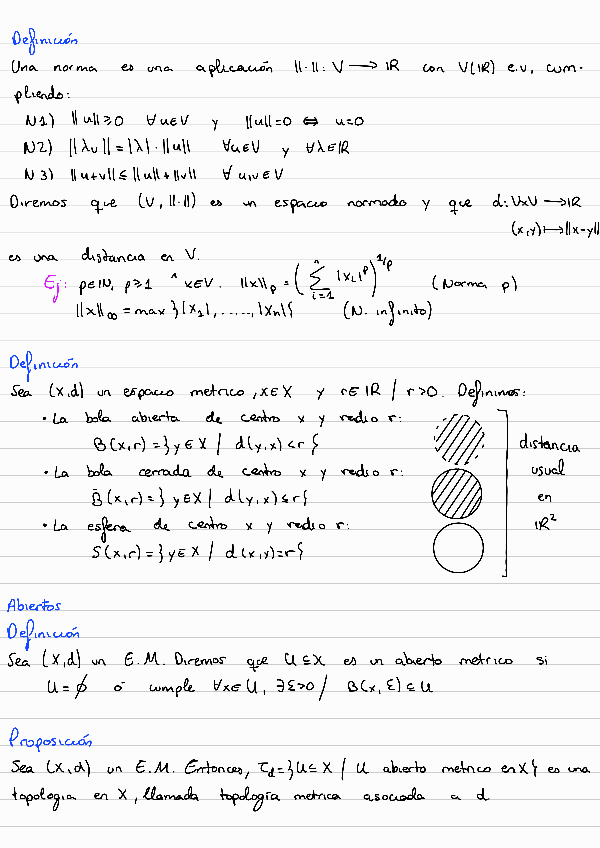 Definición
Una norma es una aplicación ||·||: V → IR con V(IR) e.v, cum-
pliendo:
N1) ||u|| ≥ 0 ∀u∈V y ||u||=0 ⇔ u=0
N2) ||λu|| = |λ|·||u|| ∀u∈V y ∀λ∈IR
N3) ||u+v|| ≤ ||u||+||v|| ∀u,v∈V
Diremos que (V, ||·||) es un espacio normado y que d: V×V → IR
(x,y) ↦ ||x-y||
es una distancia en V.
Ej: p∈IN, p≥1 ^ x∈V. ||x||_p = (∑_{i=1}^{n} |x_i|^p)^{1/p} (Norma p)
||x||_∞ = max {|x_1|, ....., |x_n|} (N. infinito)
Definición
Sea (X,d) un espacio metrico, x∈X y r∈IR / r>0. Definimos:
• La bola abierta de centro x y radio r:
B(x,r) = {y∈X / d(y,x)<r}
• La bola cerrada de centro x y radio r:
B̄(x,r) = {y∈X / d(y,x)≤r}
• La esfera de centro x y radio r:
S(x,r) = {y∈X / d(x,y)=r}
distancia
usual
en
IR²
Abiertos
Definición
Sea (X,d) un E.M. Diremos que U⊆X es un abierto metrico si
U=∅ ó cumple ∀x∈U, ∃ε>0 / B(x,ε)⊆U
Proposición
Sea (X,d) un E.M. Entonces, τ_d = {U⊆X / U abierto metrico en X} es una
topologia en X, llamada topología metrica asociada a d